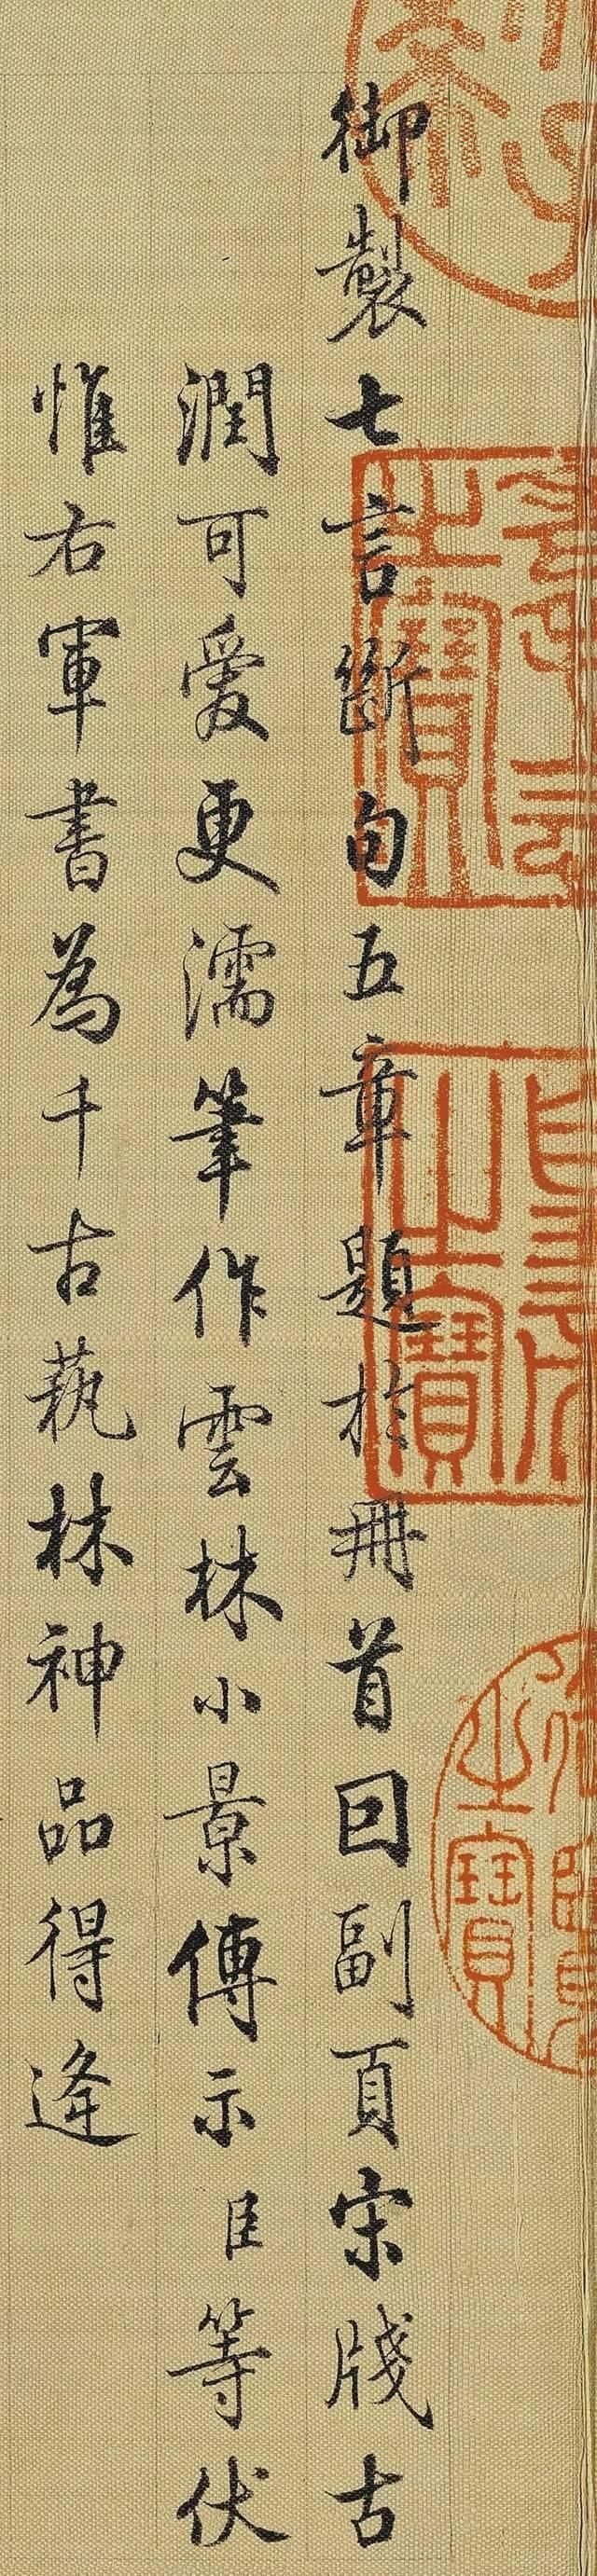 御製七言斷句五章題於冊首回副頁宋牋古
潤可愛更濡筆作雲林小景傳示臣等伏
惟右軍書為千古蓺林神品得逢